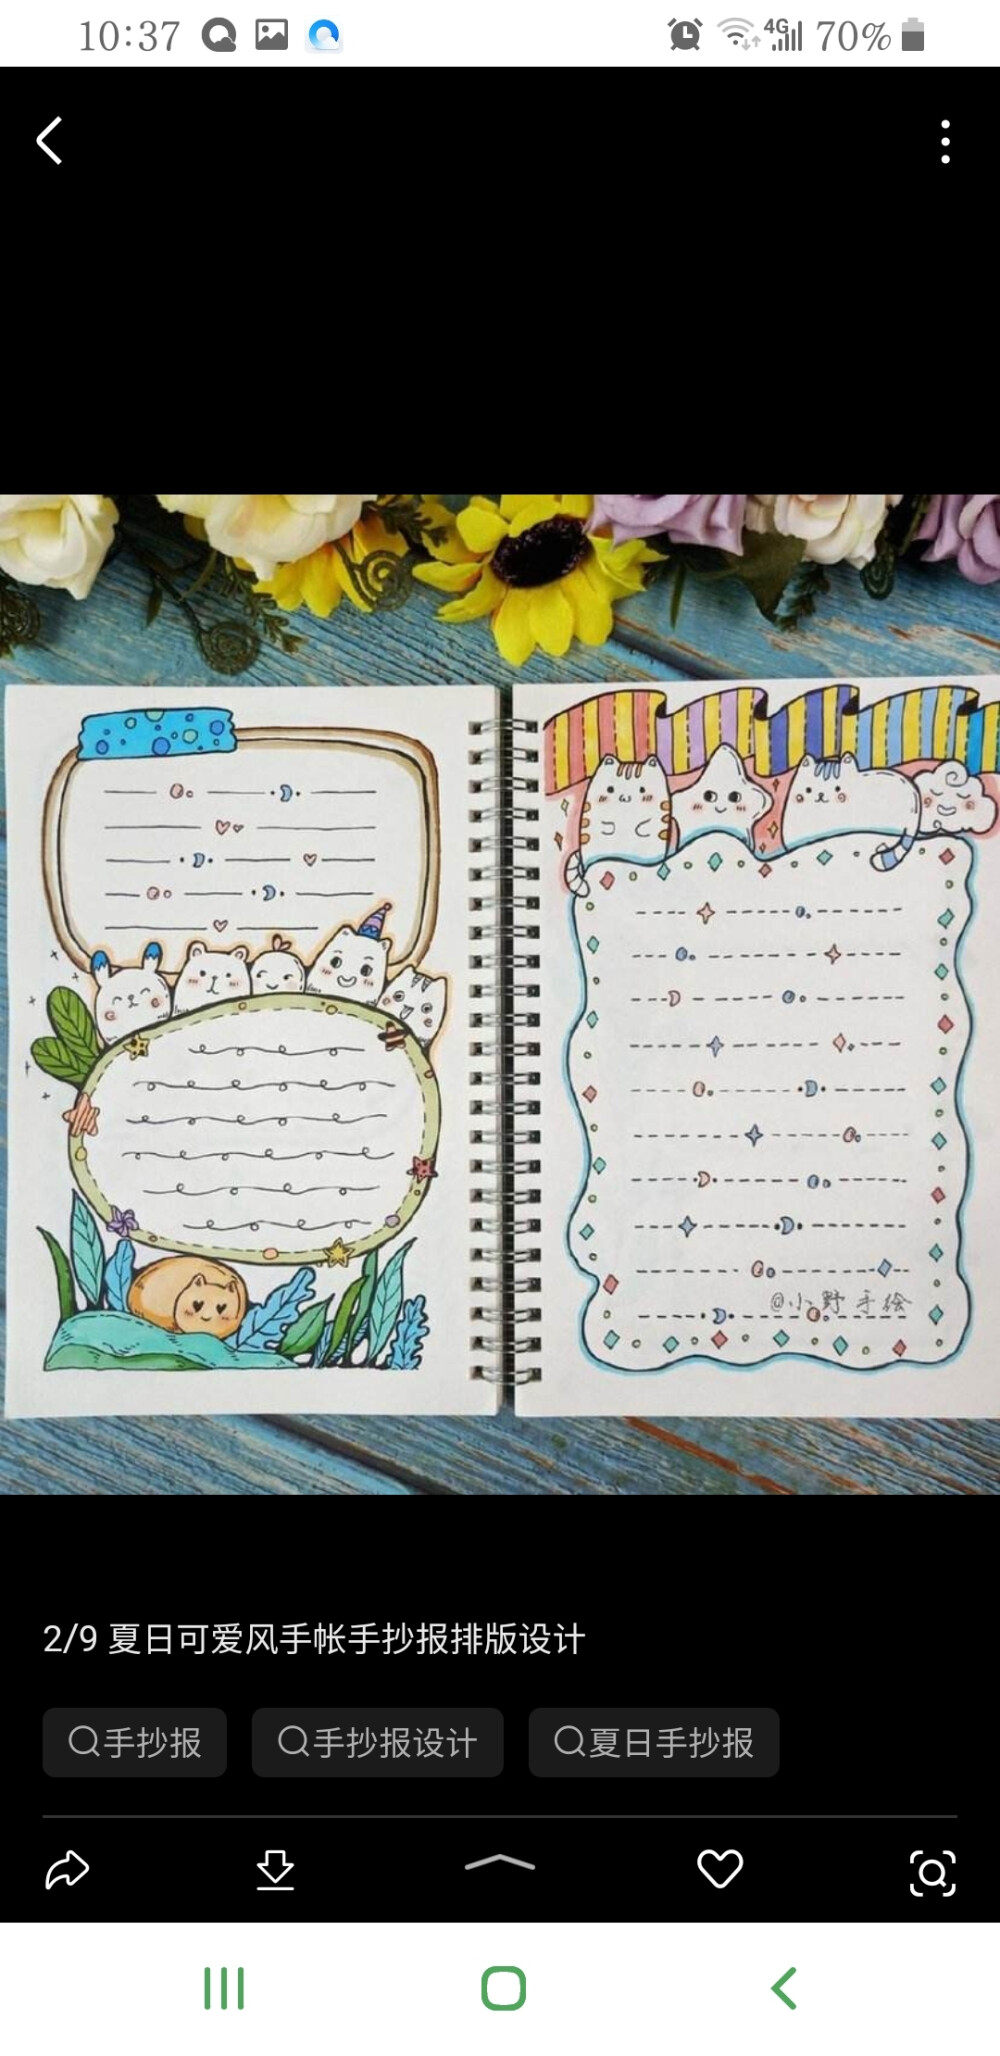 10:37 4G 70%
@小野手绘
2/9 夏日可爱风手帐手抄报排版设计
手抄报 手抄报设计 夏日手抄报